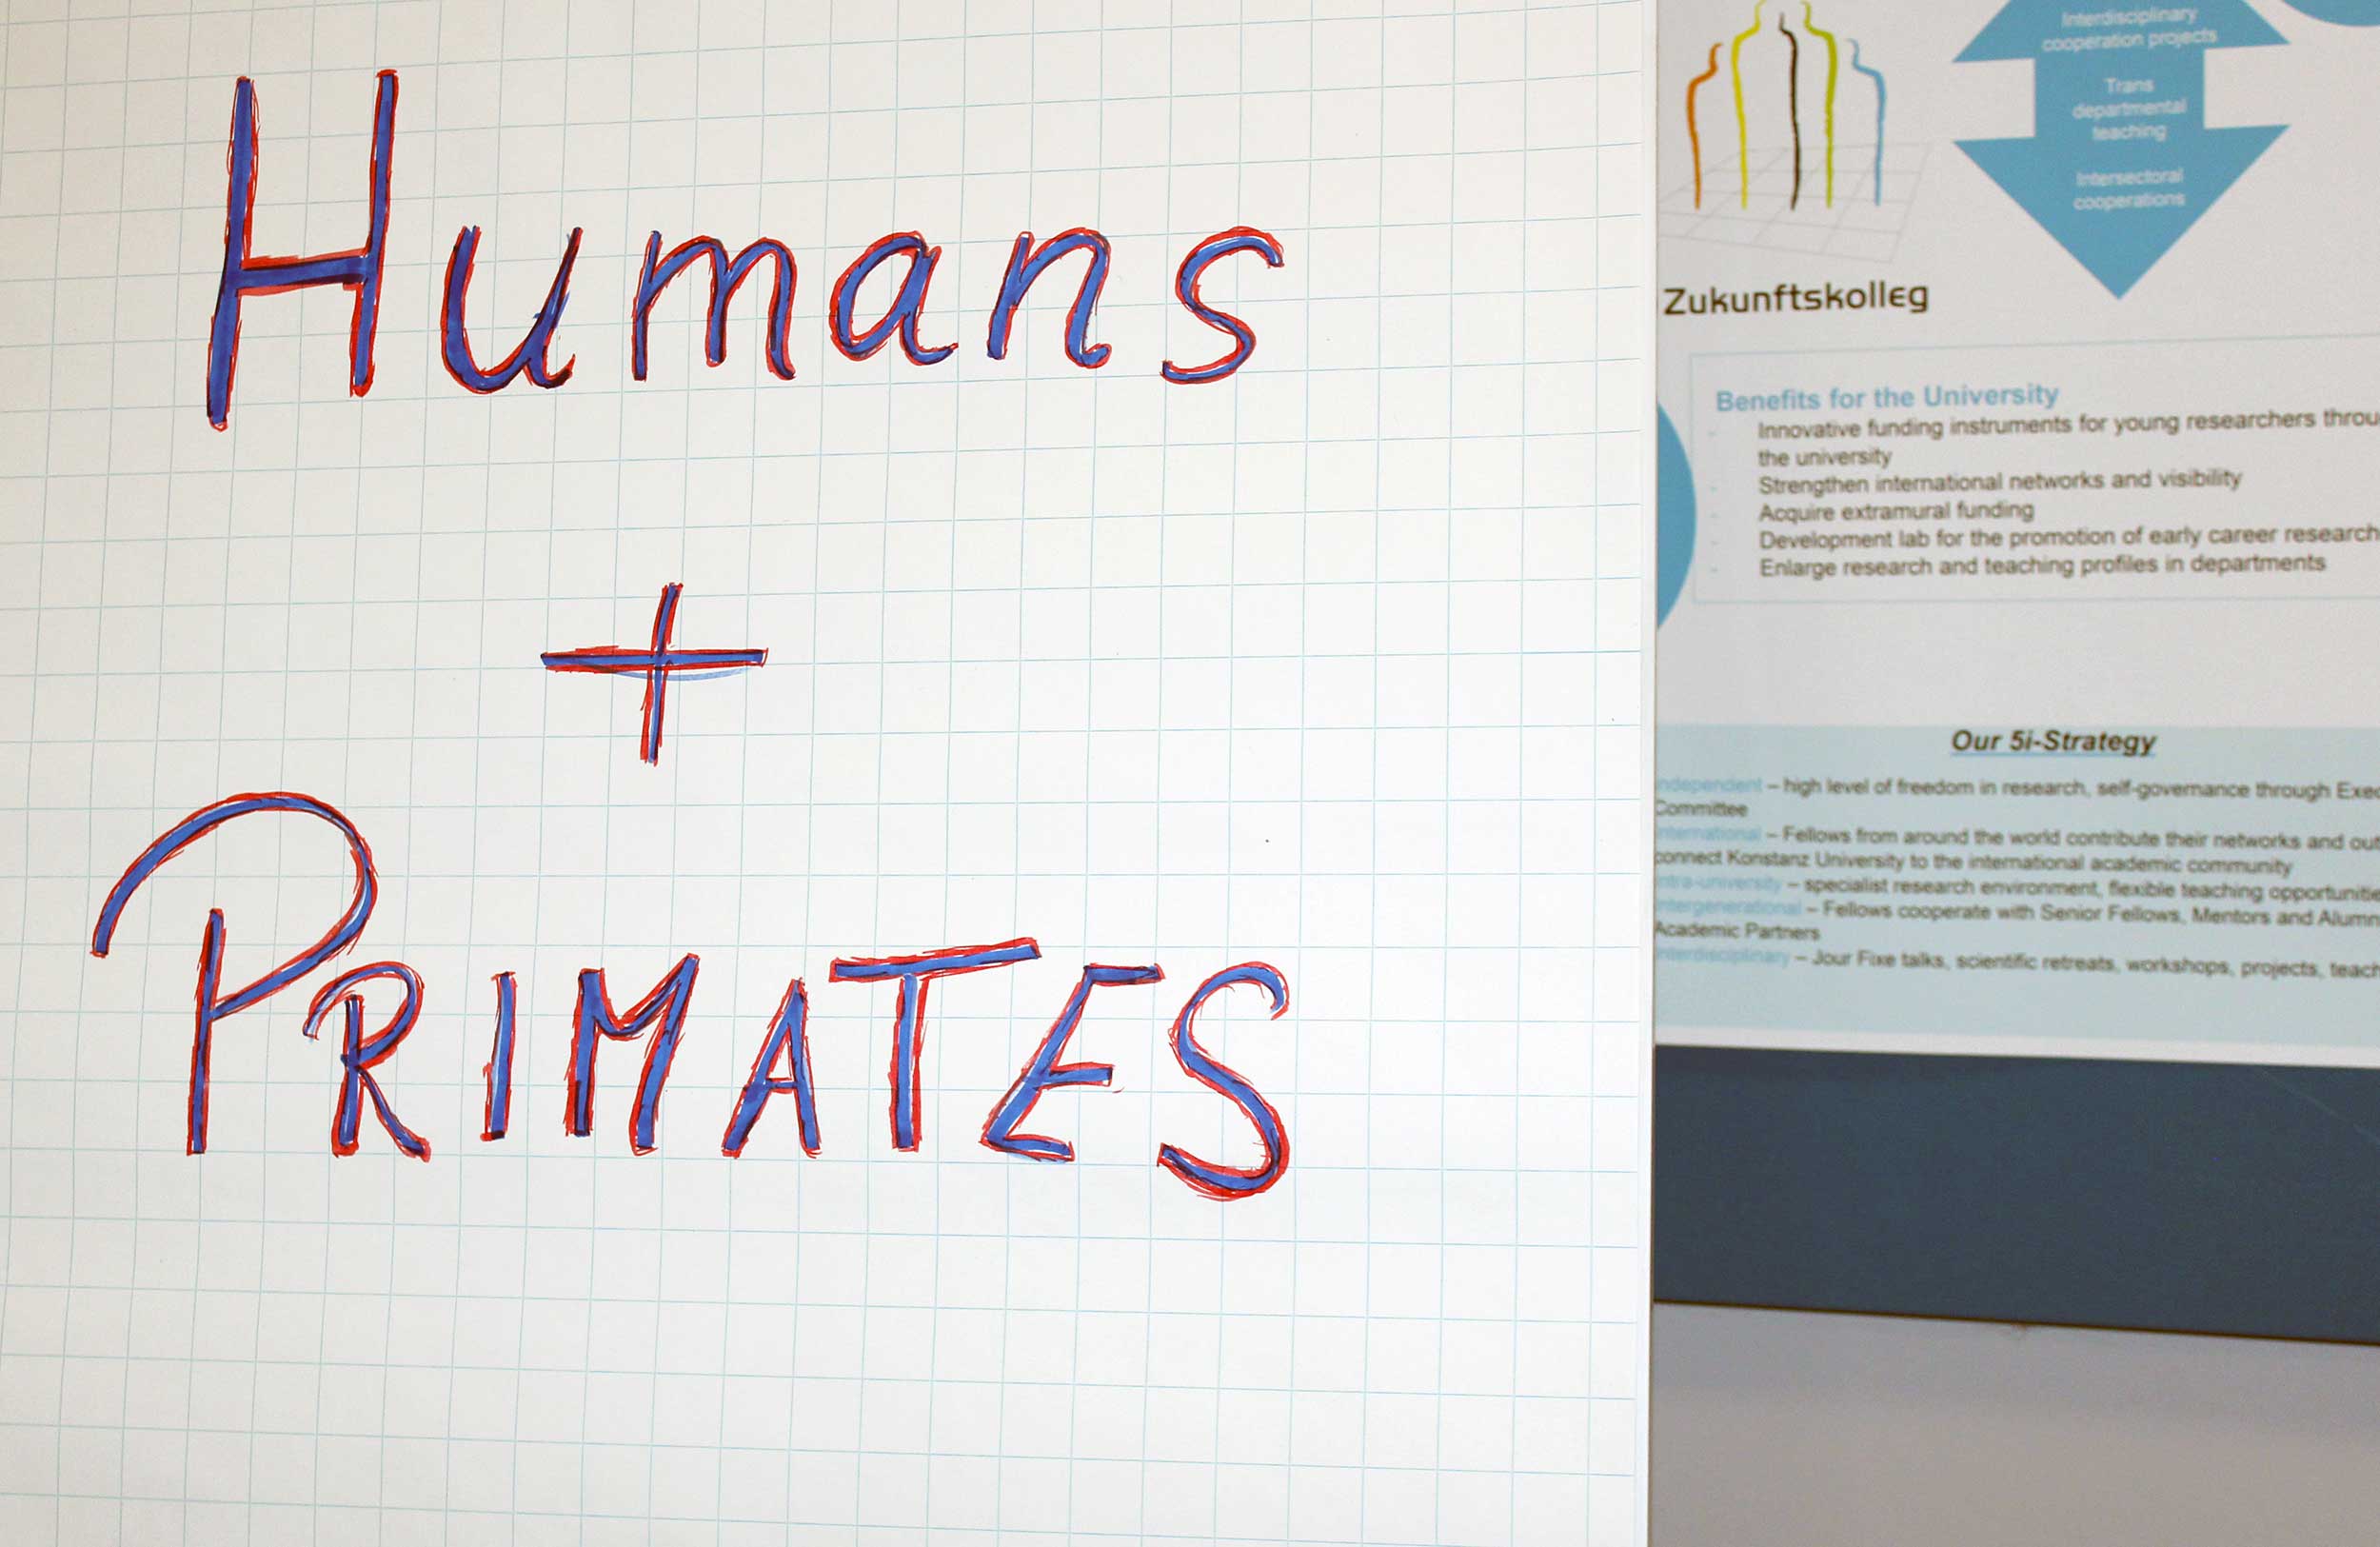 Humans
+
PRIMATES
Interdisciplinary
cooperation projects
Trans
departmental
teaching
Intersectoral
cooperations
Zukunftskolleg
Benefits for the University
- Innovative funding instruments for young researchers
the university
- Strengthen international networks and visibility
- Acquire extramural funding
- Development lab for the promotion of early career
- Enlarge research and teaching profiles in departments
Our 5i-Strategy
– high level of freedom in research, self-governance through
Committee
– Fellows from around the world contribute their networks and
connect Konstanz University to the international academic community
– specialist research environment, flexible teaching
– Fellows cooperate with Senior Fellows, Mentors and
Academic Partners
– Jour Fixe talks, scientific retreats, workshops, projects,